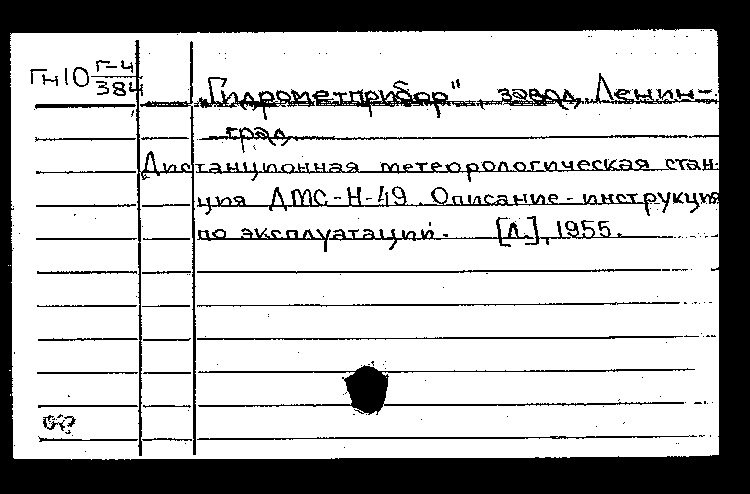 Гн10 Г-4
384
"Гидрометприбор", завод, Ленин-
град
Дистанционная метеорологическая стан-
ция ДМС-Н-49. Описание-инструкция
по эксплуатации. [Л.], 1955.